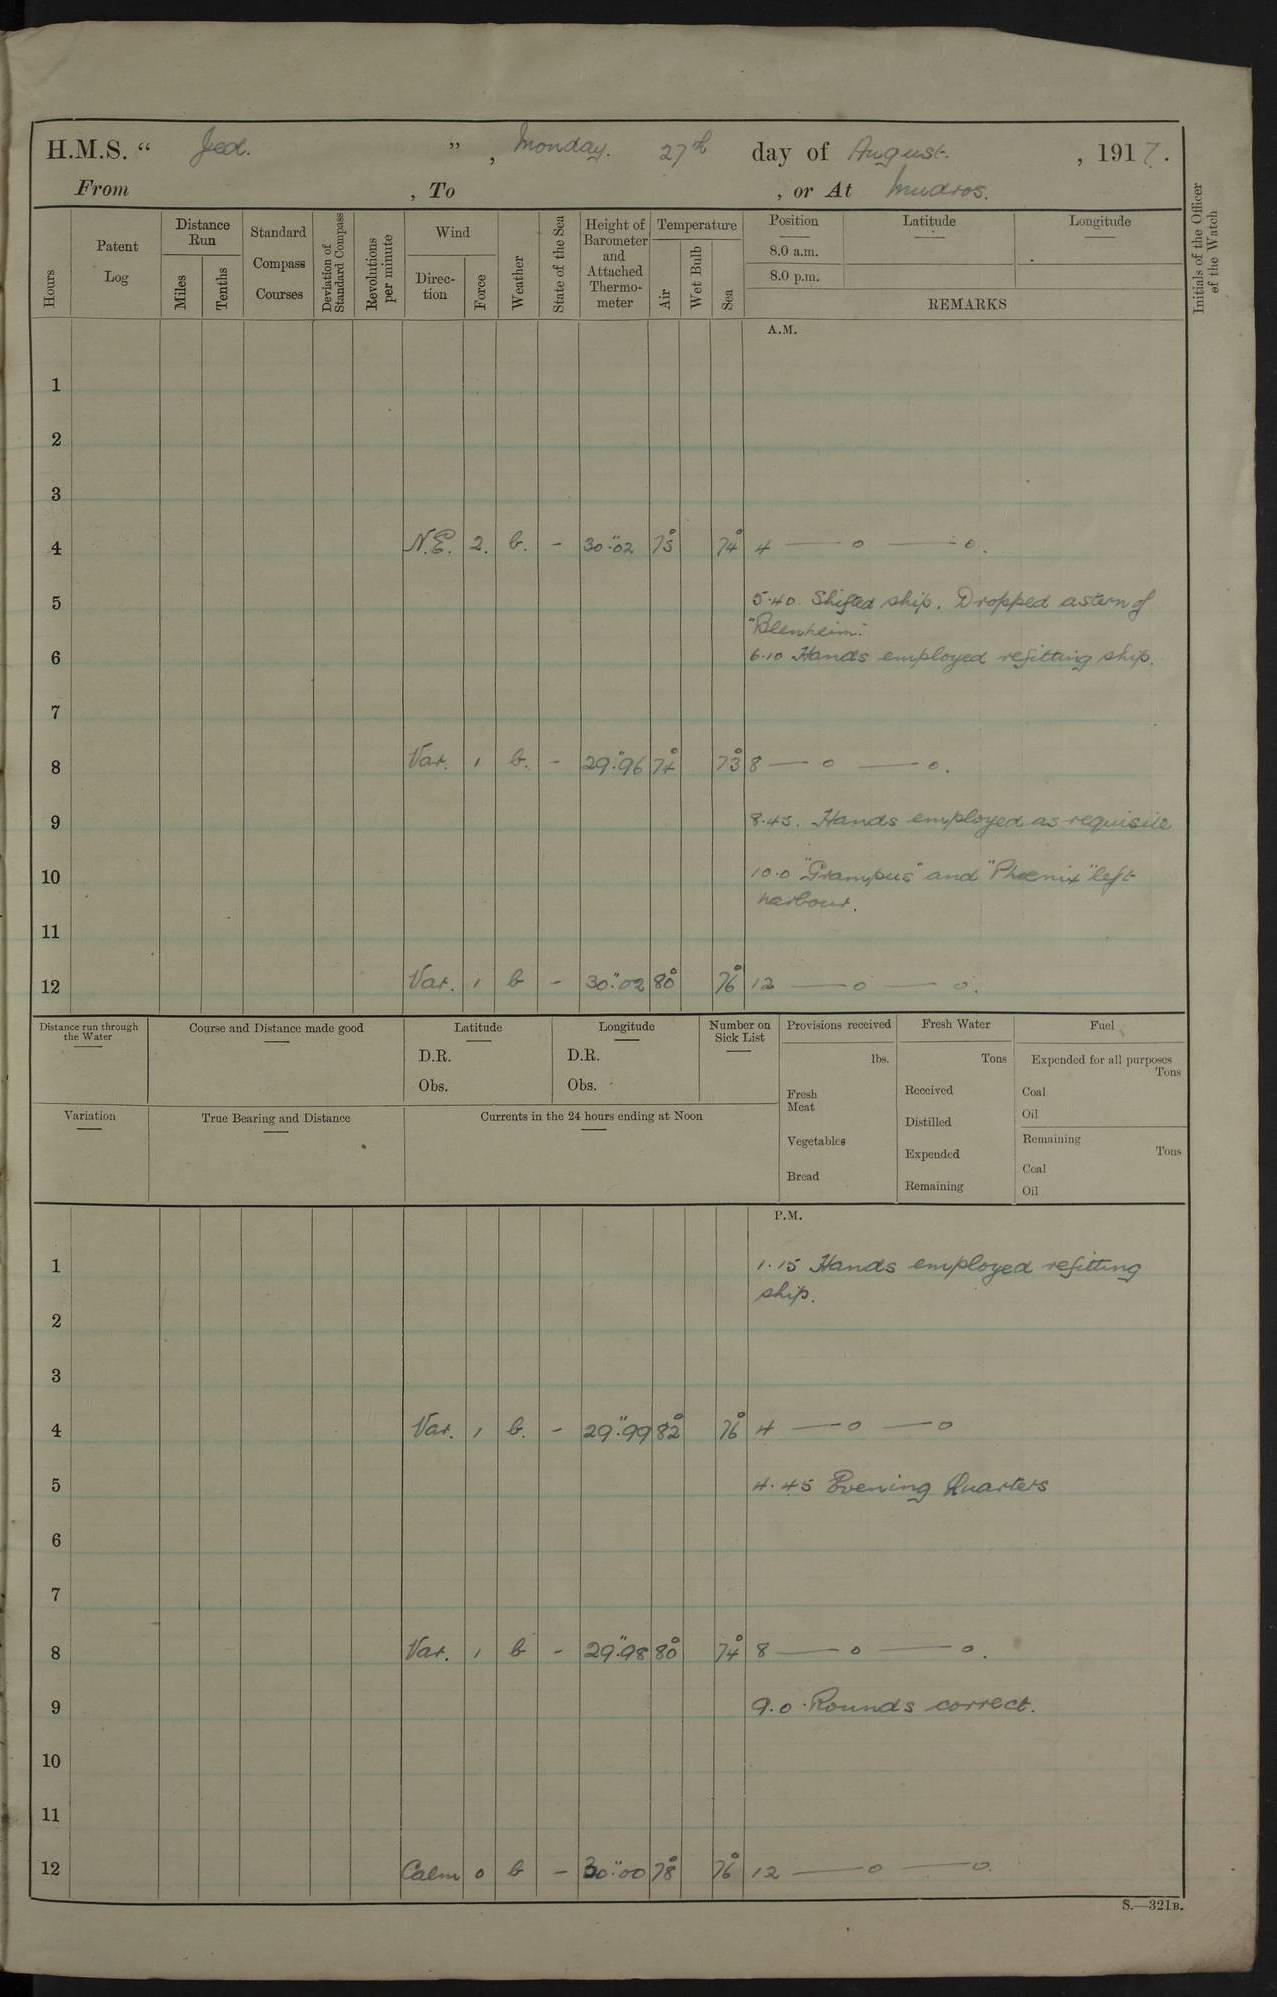 H.M.S. “ Jed. ” , Monday. 27th day of August. , 1917.
From , To , or At Mudros.
Hours
Patent Log
Distance Run
Miles
Tenths
Standard Compass Courses
Deviation of Standard Compass
Revolutions per minute
Wind
Direc-tion
Force
Weather
State of the Sea
Height of Barometer and Attached Thermo-meter
Temperature
Air
Wet Bulb
Sea
Position
Latitude
Longitude
8.0 a.m.
8.0 p.m.
REMARKS
Initials of the Officer of the Watch
A.M.
1
2
3
4 N.E. 2. b. - 30".02 75° 74° 4 — o — o.
5 5.40. Shifted ship. Dropped astern of
"Blenheim".
6 6.10 Hands employed refitting ship.
7
8 Var. 1 b. - 29".96 74° 73° 8 — o — o.
9 8.45. Hands employed as requisite
10 10.0 "Grampus" and "Phoenix" left
harbour.
11
12 Var. 1 b - 30".02 80° 76° 12 — o — o.
Distance run through the Water
Course and Distance made good
Latitude
D.R.
Obs.
Longitude
D.R.
Obs.
Number on Sick List
Provisions received
lbs.
Fresh Meat
Vegetables
Bread
Fresh Water
Tons
Received
Distilled
Expended
Remaining
Fuel
Expended for all purposes
Tons
Coal
Oil
Remaining
Tons
Coal
Oil
Variation
True Bearing and Distance
Currents in the 24 hours ending at Noon
P.M.
1 1.15 Hands employed refitting
ship.
2
3
4 Var. 1 b. - 29".99 82° 76° 4 — o — o
5 4.45 Evening Quarters
6
7
8 Var. 1 b - 29".98 80° 74° 8 — o — o.
9 9.0 Rounds correct.
10
11
12 Calm 0 b - 30".00 78° 76° 12 — o — o.
S.—321B.